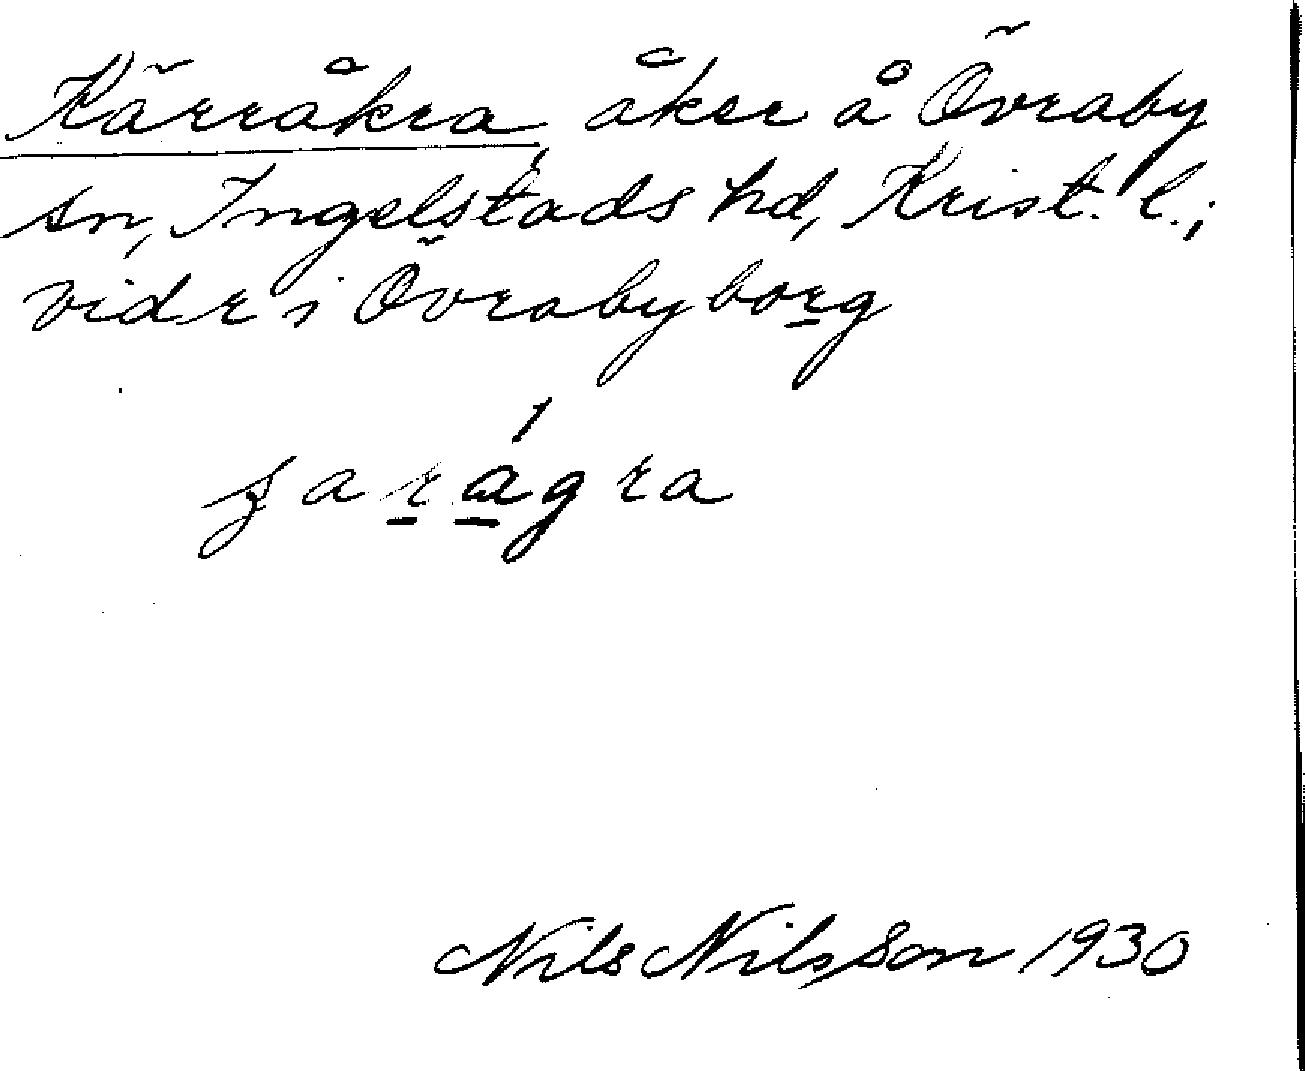 Kärråkra, åker å Övraby
sn, Ingelstads hd, Krist. l.;
vid r i Övrabyborg
Nils Nilsson 1930